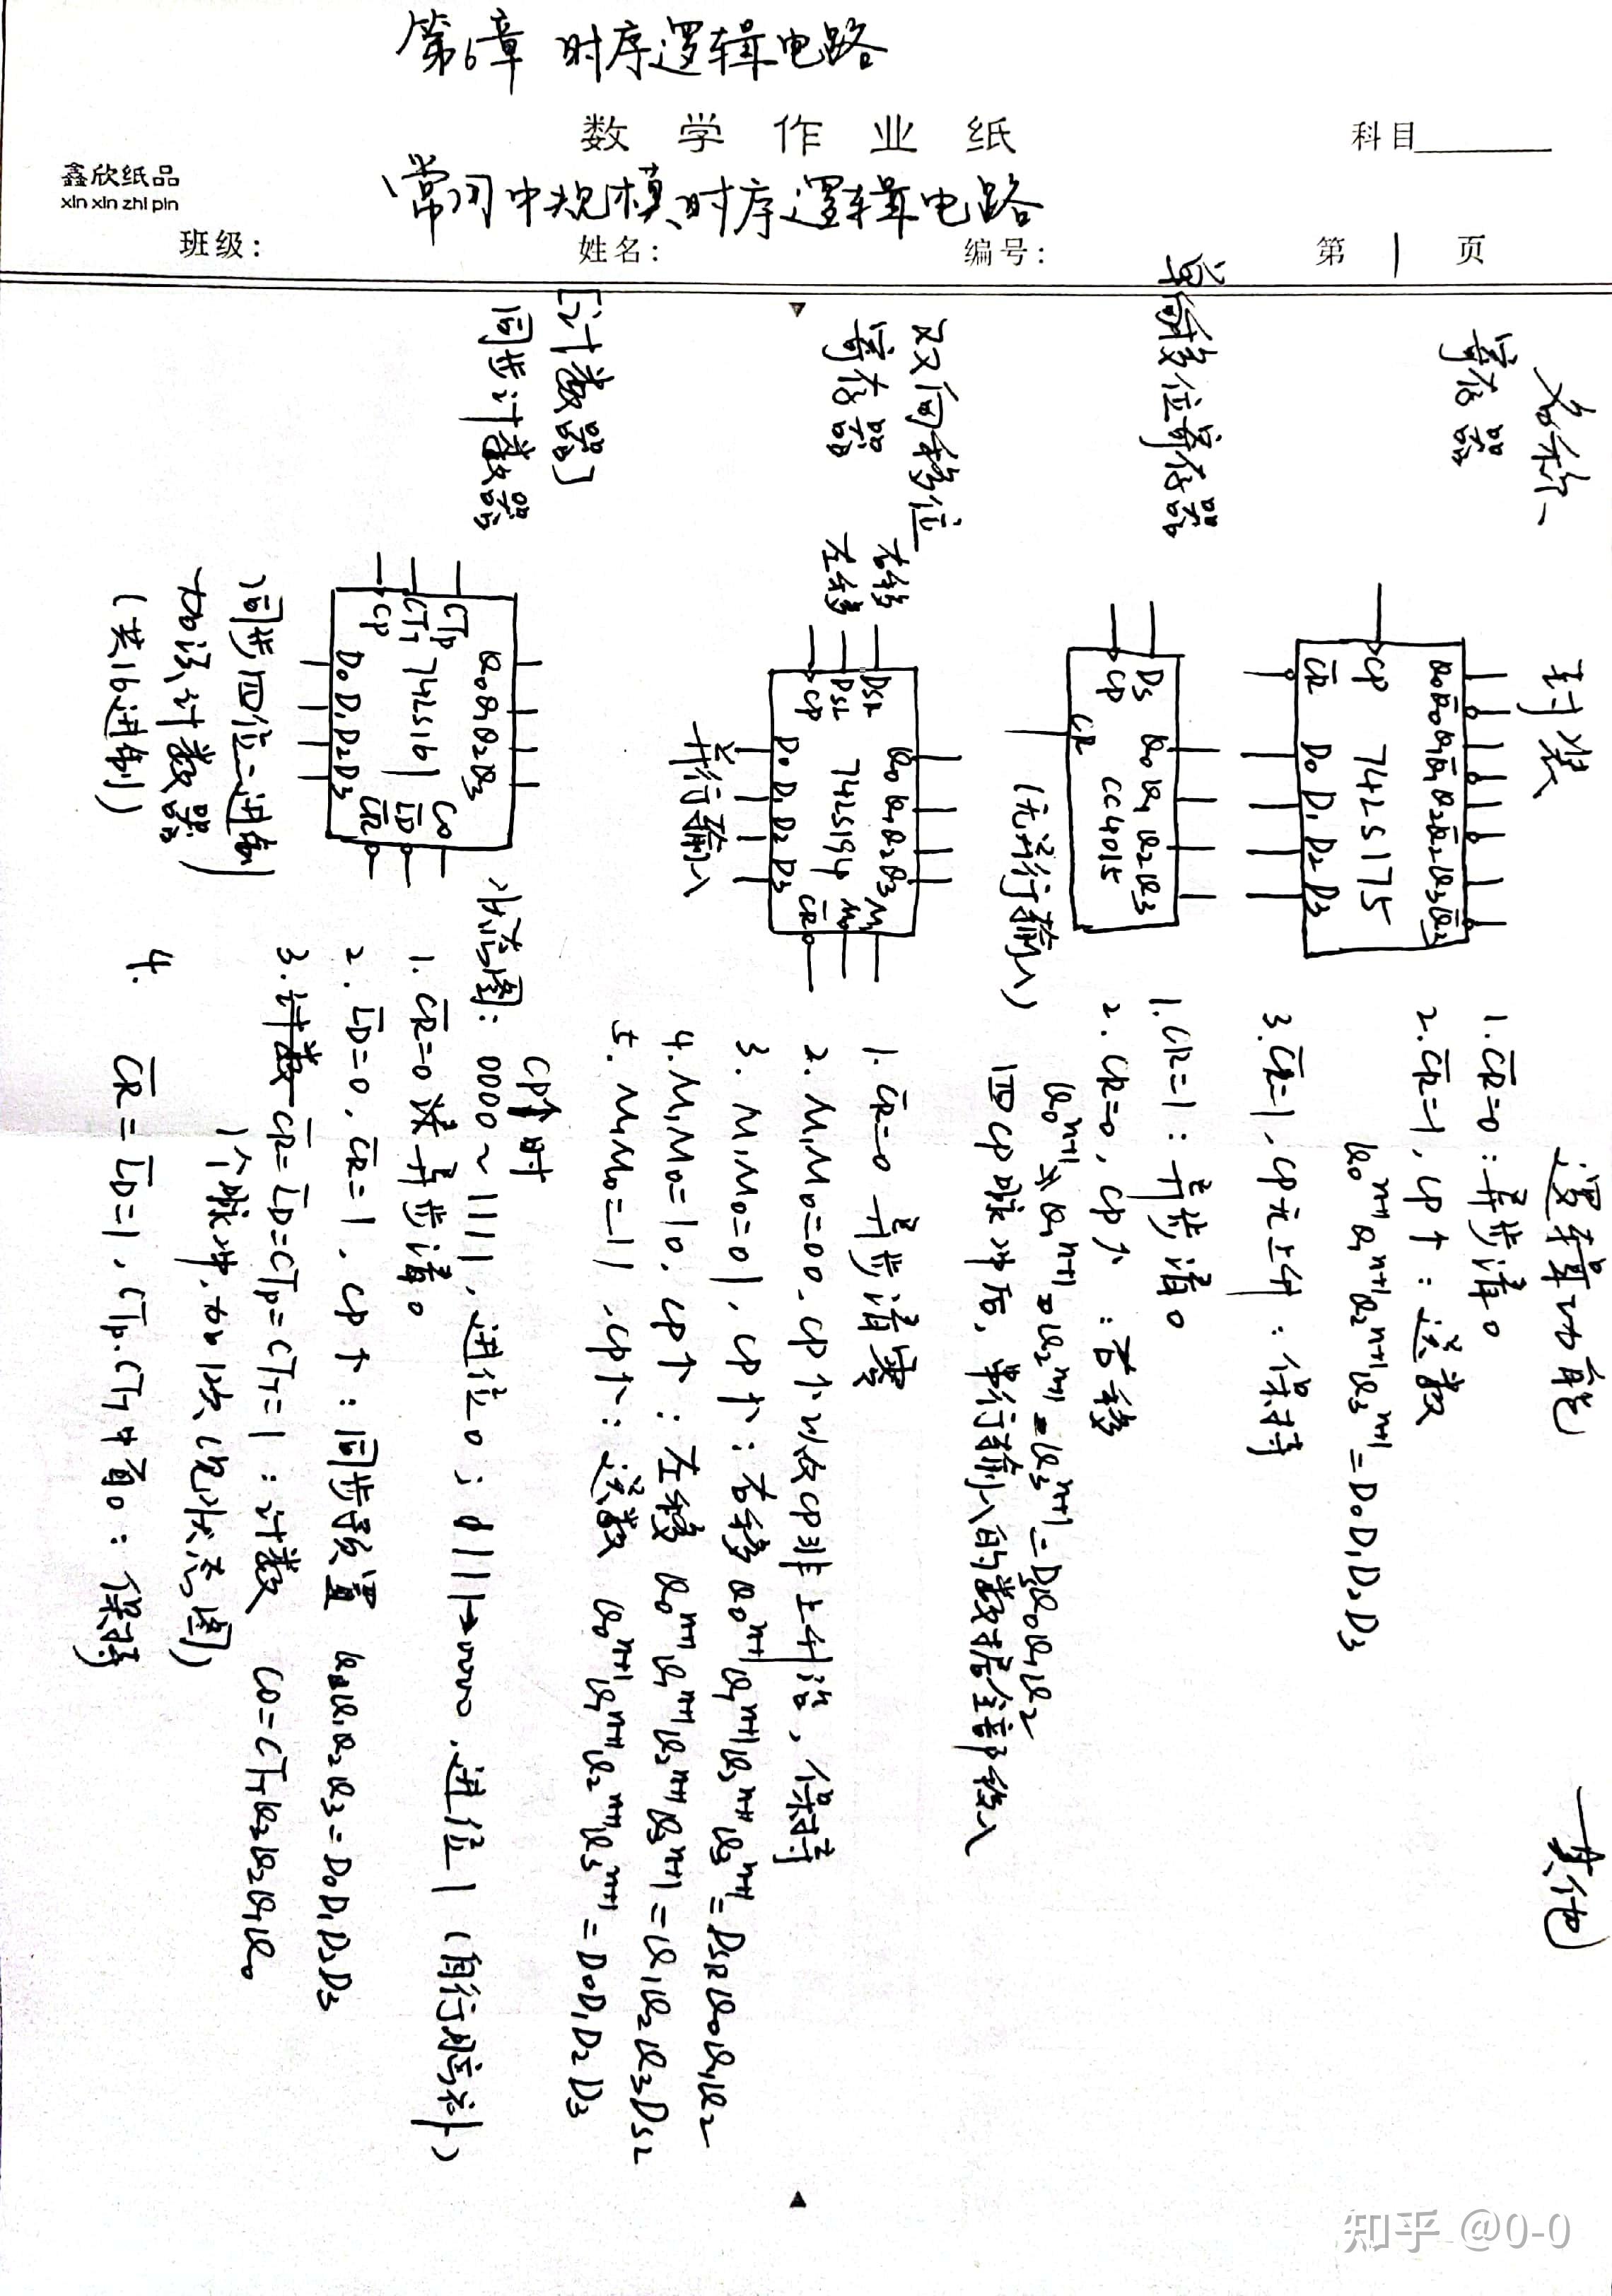 第6章 时序逻辑电路
数学作业纸
科目
鑫欣纸品
xin xin zhi pin
常用中规模时序逻辑电路
班级:
姓名:
编号:
第 1 页
名称
封装
逻辑功能
其他
寄存器
CP
C̅R̅
74LS175
Q0 Q̅0 Q1 Q̅1 Q2 Q̅2 Q3 Q̅3
D0 D1 D2 D3
1. C̅R̅=0:异步清0
2. C̅R̅=1, CP↑:送数
Q0ⁿ⁺¹Q1ⁿ⁺¹Q2ⁿ⁺¹Q3ⁿ⁺¹=D0D1D2D3
3. C̅R̅=1, CP无上升:保持
单向移位寄存器
DS
CP
CR
CC4015
Q0 Q1 Q2 Q3
(无并行输入)
1. CR=1:异步清0
2. CR=0, CP↑:右移
Q0ⁿ⁺¹Q1ⁿ⁺¹Q2ⁿ⁺¹Q3ⁿ⁺¹=DSQ0Q1Q2
四CP脉冲后,串行输入的数据全部移入
双向移位
寄存器
右移
左移
DSR
DSL
CP
74LS194
Q0 Q1 Q2 Q3
M1
M0
C̅R̅
D0 D1 D2 D3
并行输入
1. C̅R̅=0 异步清零
2. M1M0=00, CP↑以及CP非上升沿,保持
3. M1M0=01, CP↑:右移 Q0ⁿ⁺¹Q1ⁿ⁺¹Q2ⁿ⁺¹Q3ⁿ⁺¹=DSRQ0Q1Q2
4. M1M0=10, CP↑:左移 Q0ⁿ⁺¹Q1ⁿ⁺¹Q2ⁿ⁺¹Q3ⁿ⁺¹=Q1Q2Q3DSL
5. M1M0=11, CP↑:送数 Q0ⁿ⁺¹Q1ⁿ⁺¹Q2ⁿ⁺¹Q3ⁿ⁺¹=D0D1D2D3
[计数器]
同步计数器
CTP
CTT
CP
74LS161
Q0 Q1 Q2 Q3
CO
L̅D̅
C̅R̅
D0 D1 D2 D3
同步四位二进制
加法计数器
(共16进制)
CP↑时
状态图:0000~1111,进位0;1111→0000,进位1(自行脑补)
1. C̅R̅=0 异步清0
2. L̅D̅=0, C̅R̅=1, CP↑:同步预置 Q0Q1Q2Q3=D0D1D2D3
3. C̅R̅=L̅D̅=CTP=CTT=1:计数 CO=CTTQ3Q2Q1Q0
1个脉冲,加1次(见状态图)
4. C̅R̅=L̅D̅=1, CTP、CTT中有0:保持
知乎 @0-0